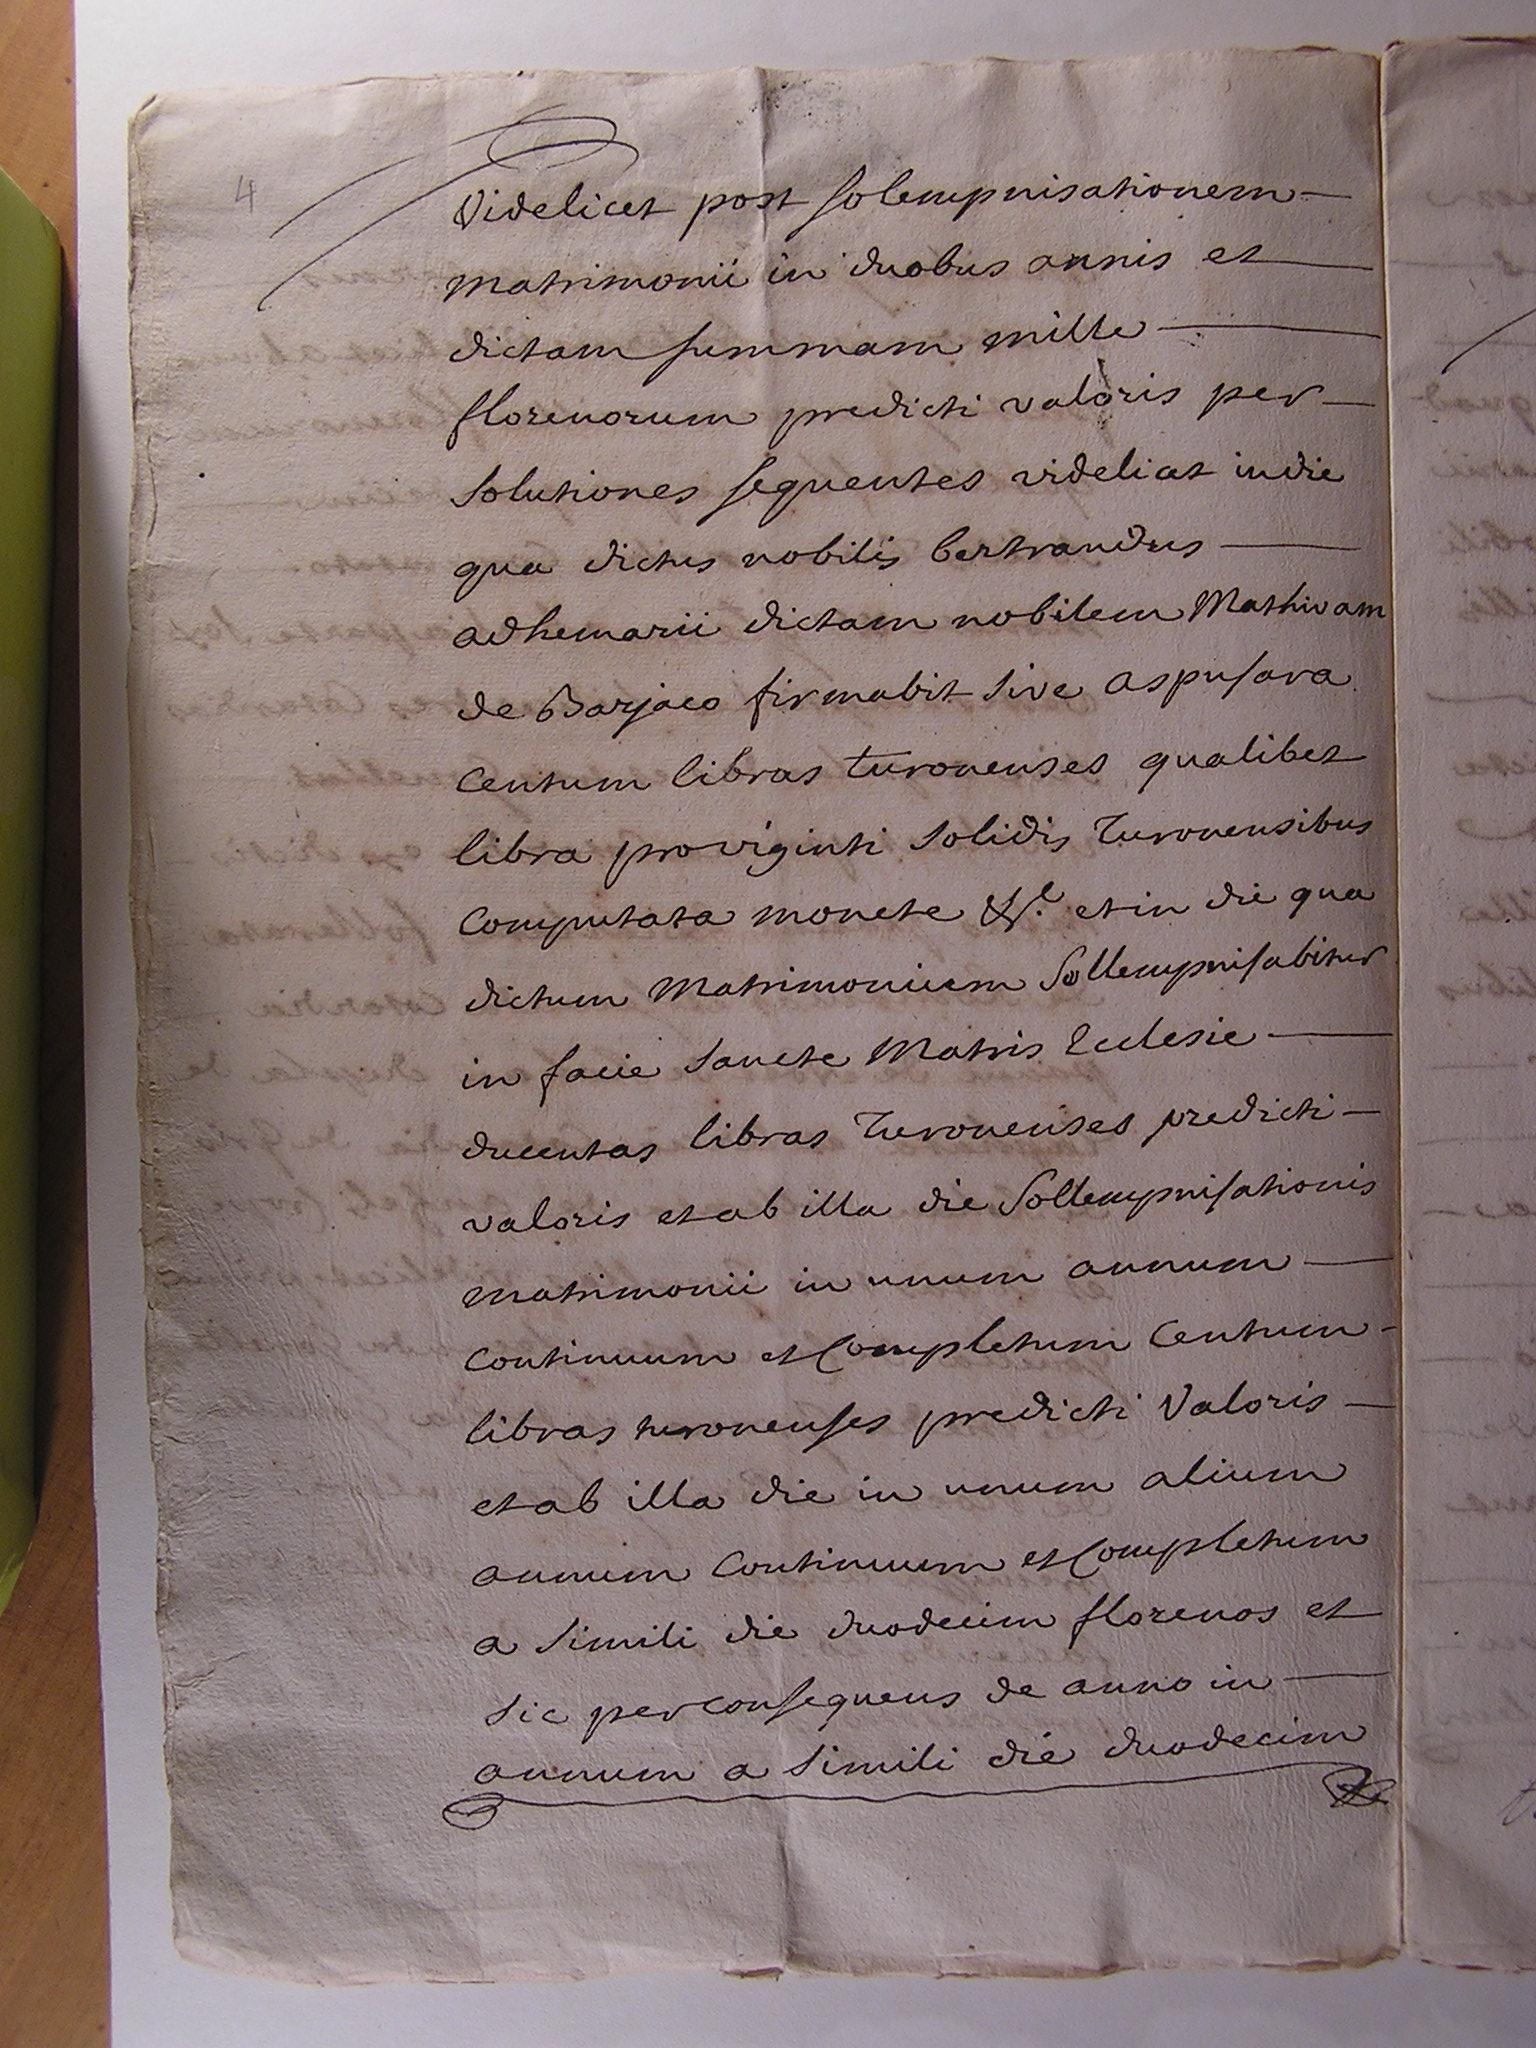 4
Videlicet post solempnisationem
matrimonii in duobus annis et
dictam summam mille
florenorum predicti valoris per
solutiones sequentes videlicet in die
qua dictus nobilis bertrandus
adhemarii dictam nobilem Mathivam
de Barjaco firmabit sive aspusara
centum libras turonenses qualibet
libra pro viginti solidis Turonensibus
computata monete &c.ª et in die qua
dictum Matrimonium Sollempnisabitur
in facie sancte Matris Ecclesie
ducentas libras Turonenses predicti
valoris et ab illa die Sollempnisationis
matrimonii in unum annum
continuum et Completum Centum
libras turonenses predicti Valoris
et ab illa die in unum alium
annum Continuum et Completum
a simili die duodecim florenos et
sic per consequens de anno in
annum a simili die duodecim